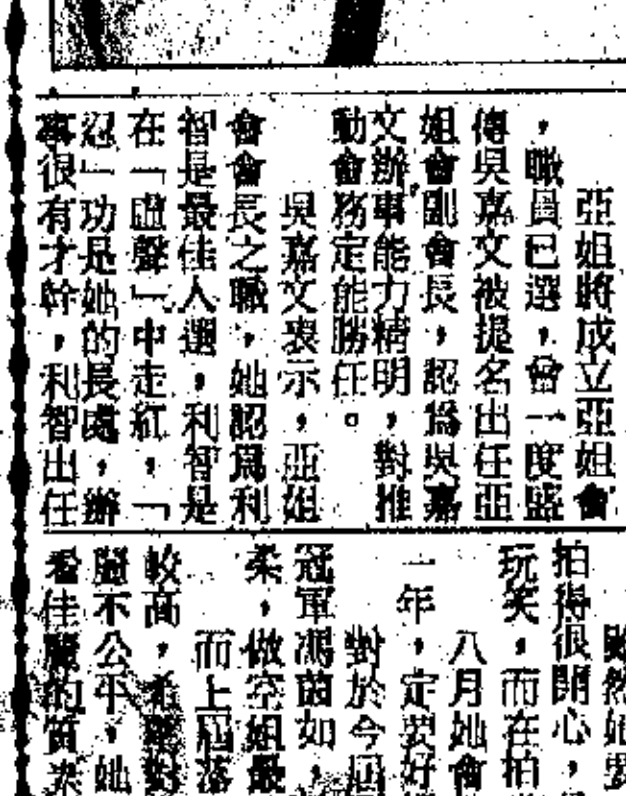 亞姐將成立亞姐會
，職員已選，會一度盛
傳吳嘉文被提名出任亞
姐會副會長，認爲吳嘉
文辦事能力精明，對推
動會務定能勝任。
吳嘉文表示，亞姐
會會長之職，她認爲利
智是最佳人選，利智是
在「虛聲」中走紅，「
忍」功是她的長處，辦
事很有才幹，利智出任
雖然她
拍得很開心，
玩笑，而在拍
八月她會
一年，定要好
對於今屆
冠軍馮茵如，
柔，做空姐最
而上屆落
較高，希望對
麗不公平，她
看佳麗的質素